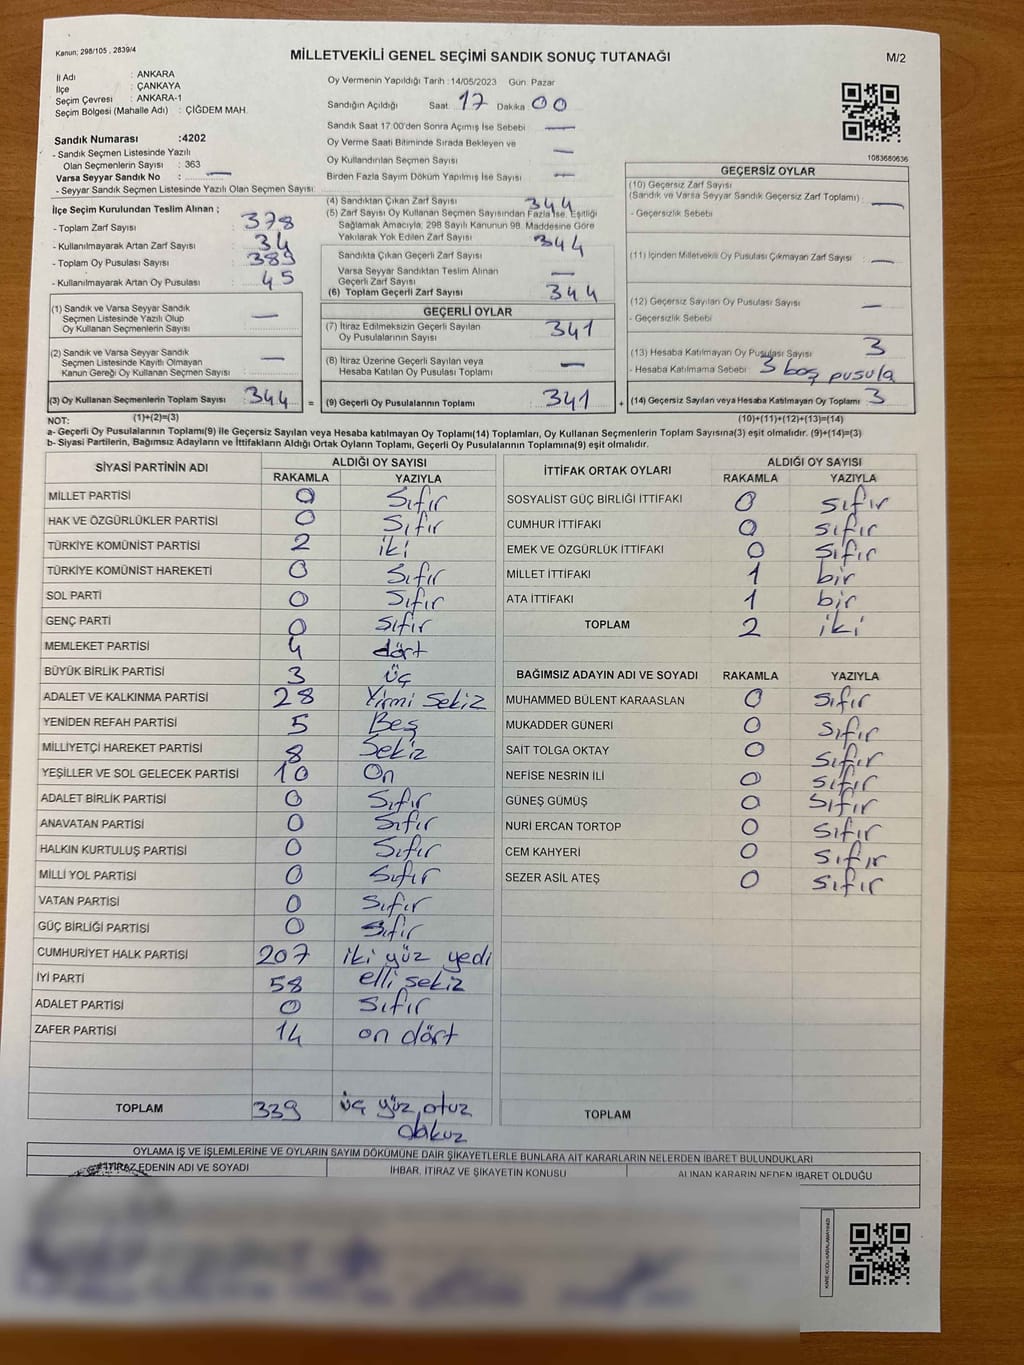 Kanun; 298/105 , 2839/4
MİLLETVEKİLİ GENEL SEÇİMİ SANDIK SONUÇ TUTANAĞI
M/2
İl Adı : ANKARA
İlçe : ÇANKAYA
Seçim Çevresi : ANKARA-1
Seçim Bölgesi (Mahalle Adı) : ÇİĞDEM MAH.
Oy Vermenin Yapıldığı Tarih : 14/05/2023 Gün: Pazar
Sandığın Açıldığı Saat: 17 Dakika 00
Sandık Saat 17.00'den Sonra Açımış İse Sebebi —
Oy Verme Saati Bitiminde Sırada Bekleyen ve
Oy Kullandırılan Seçmen Sayısı —
Birden Fazla Sayım Döküm Yapılmış İse Sayısı : —
1083680636
Sandık Numarası :4202
- Sandık Seçmen Listesinde Yazılı
Olan Seçmenlerin Sayısı : 363
Varsa Seyyar Sandık No : —
- Seyyar Sandık Seçmen Listesinde Yazılı Olan Seçmen Sayısı:
İlçe Seçim Kurulundan Teslim Alınan ;
- Toplam Zarf Sayısı : 378
- Kullanılmayarak Artan Zarf Sayısı : 34
- Toplam Oy Pusulası Sayısı : 389
- Kullanılmayarak Artan Oy Pusulası : 45
(1) Sandık ve Varsa Seyyar Sandık
Seçmen Listesinde Yazılı Olup
Oy Kullanan Seçmenlerin Sayısı : —
(2) Sandık ve Varsa Seyyar Sandık
Seçmen Listesinde Kayıtlı Olmayan
Kanun Gereği Oy Kullanan Seçmen Sayısı : —
(3) Oy Kullanan Seçmenlerin Toplam Sayısı : 344 =
(4) Sandıktan Çıkan Zarf Sayısı : 344
(5) Zarf Sayısı Oy Kullanan Seçmen Sayısından Fazla İse, Eşitliği
Sağlamak Amacıyla, 298 Sayılı Kanunun 98. Maddesine Göre
Yakılarak Yok Edilen Zarf Sayısı :
Sandıkta Çıkan Geçerli Zarf Sayısı : 344
Varsa Seyyar Sandıktan Teslim Alınan
Geçerli Zarf Sayısı : —
(6) Toplam Geçerli Zarf Sayısı : 344
GEÇERLİ OYLAR
(7) İtiraz Edilmeksizin Geçerli Sayılan
Oy Pusulalarının Sayısı : 341
(8) İtiraz Üzerine Geçerli Sayılan veya
Hesaba Katılan Oy Pusulası Toplamı : —
(9) Geçerli Oy Pusulalarının Toplamı : 341 +
GEÇERSİZ OYLAR
(10) Geçersiz Zarf Sayısı
(Sandık ve Varsa Seyyar Sandık Geçersiz Zarf Toplamı) : —
- Geçersizlik Sebebi
(11) İçinden Milletvekili Oy Pusulası Çıkmayan Zarf Sayısı : —
(12) Geçersiz Sayılan Oy Pusulası Sayısı : —
- Geçersizlik Sebebi
(13) Hesaba Katılmayan Oy Pusulası Sayısı : 3
- Hesaba Katılmama Sebebi : 3 boş pusula
(14) Geçersiz Sayılan veya Hesaba Katılmayan Oy Toplamı : 3
NOT: (1)+(2)=(3)
(10)+(11)+(12)+(13)=(14)
a- Geçerli Oy Pusulalarının Toplamı(9) ile Geçersiz Sayılan veya Hesaba katılmayan Oy Toplamı(14) Toplamları, Oy Kullanan Seçmenlerin Toplam Sayısına(3) eşit olmalıdır. (9)+(14)=(3)
b- Siyasi Partilerin, Bağımsız Adayların ve İttifakların Aldığı Ortak Oyların Toplamı, Geçerli Oy Pusulalarının Toplamına(9) eşit olmalıdır.
SİYASİ PARTİNİN ADI ALDIĞI OY SAYISI
RAKAMLA YAZIYLA
MİLLET PARTİSİ 0 Sıfır
HAK VE ÖZGÜRLÜKLER PARTİSİ 0 Sıfır
TÜRKİYE KOMÜNİST PARTİSİ 2 iki
TÜRKİYE KOMÜNİST HAREKETİ 0 Sıfır
SOL PARTİ 0 Sıfır
GENÇ PARTİ 0 Sıfır
MEMLEKET PARTİSİ 4 dört
BÜYÜK BİRLİK PARTİSİ 3 üç
ADALET VE KALKINMA PARTİSİ 28 Yirmi Sekiz
YENİDEN REFAH PARTİSİ 5 Beş
MİLLİYETÇİ HAREKET PARTİSİ 8 Sekiz
YEŞİLLER VE SOL GELECEK PARTİSİ 10 On
ADALET BİRLİK PARTİSİ 0 Sıfır
ANAVATAN PARTİSİ 0 Sıfır
HALKIN KURTULUŞ PARTİSİ 0 Sıfır
MİLLİ YOL PARTİSİ 0 Sıfır
VATAN PARTİSİ 0 Sıfır
GÜÇ BİRLİĞİ PARTİSİ 0 Sıfır
CUMHURİYET HALK PARTİSİ 207 iki yüz yedi
İYİ PARTİ 58 elli sekiz
ADALET PARTİSİ 0 Sıfır
ZAFER PARTİSİ 14 on dört
TOPLAM 339 üç yüz otuz
dokuz
İTTİFAK ORTAK OYLARI ALDIĞI OY SAYISI
RAKAMLA YAZIYLA
SOSYALİST GÜÇ BİRLİĞİ İTTİFAKI 0 Sıfır
CUMHUR İTTİFAKI 0 Sıfır
EMEK VE ÖZGÜRLÜK İTTİFAKI 0 Sıfır
MİLLET İTTİFAKI 1 bir
ATA İTTİFAKI 1 bir
TOPLAM 2 iki
BAĞIMSIZ ADAYIN ADI VE SOYADI RAKAMLA YAZIYLA
MUHAMMED BÜLENT KARAASLAN 0 Sıfır
MUKADDER GÜNERİ 0 Sıfır
SAİT TOLGA OKTAY 0 Sıfır
NEFİSE NESRİN İLİ 0 Sıfır
GÜNEŞ GÜMÜŞ 0 Sıfır
NURİ ERCAN TORTOP 0 Sıfır
CEM KAHYERİ 0 Sıfır
SEZER ASİL ATEŞ 0 Sıfır
TOPLAM
OYLAMA İŞ VE İŞLEMLERİNE VE OYLARIN SAYIM DÖKÜMÜNE DAİR ŞİKAYETLERLE BUNLARA AİT KARARLARIN NELERDEN İBARET BULUNDUKLARI
İTİRAZ EDENİN ADI VE SOYADI İHBAR, İTİRAZ VE ŞİKAYETİN KONUSU ALINAN KARARIN NEDEN İBARET OLDUĞU
KARE KODU KARALAMAYINIZ!